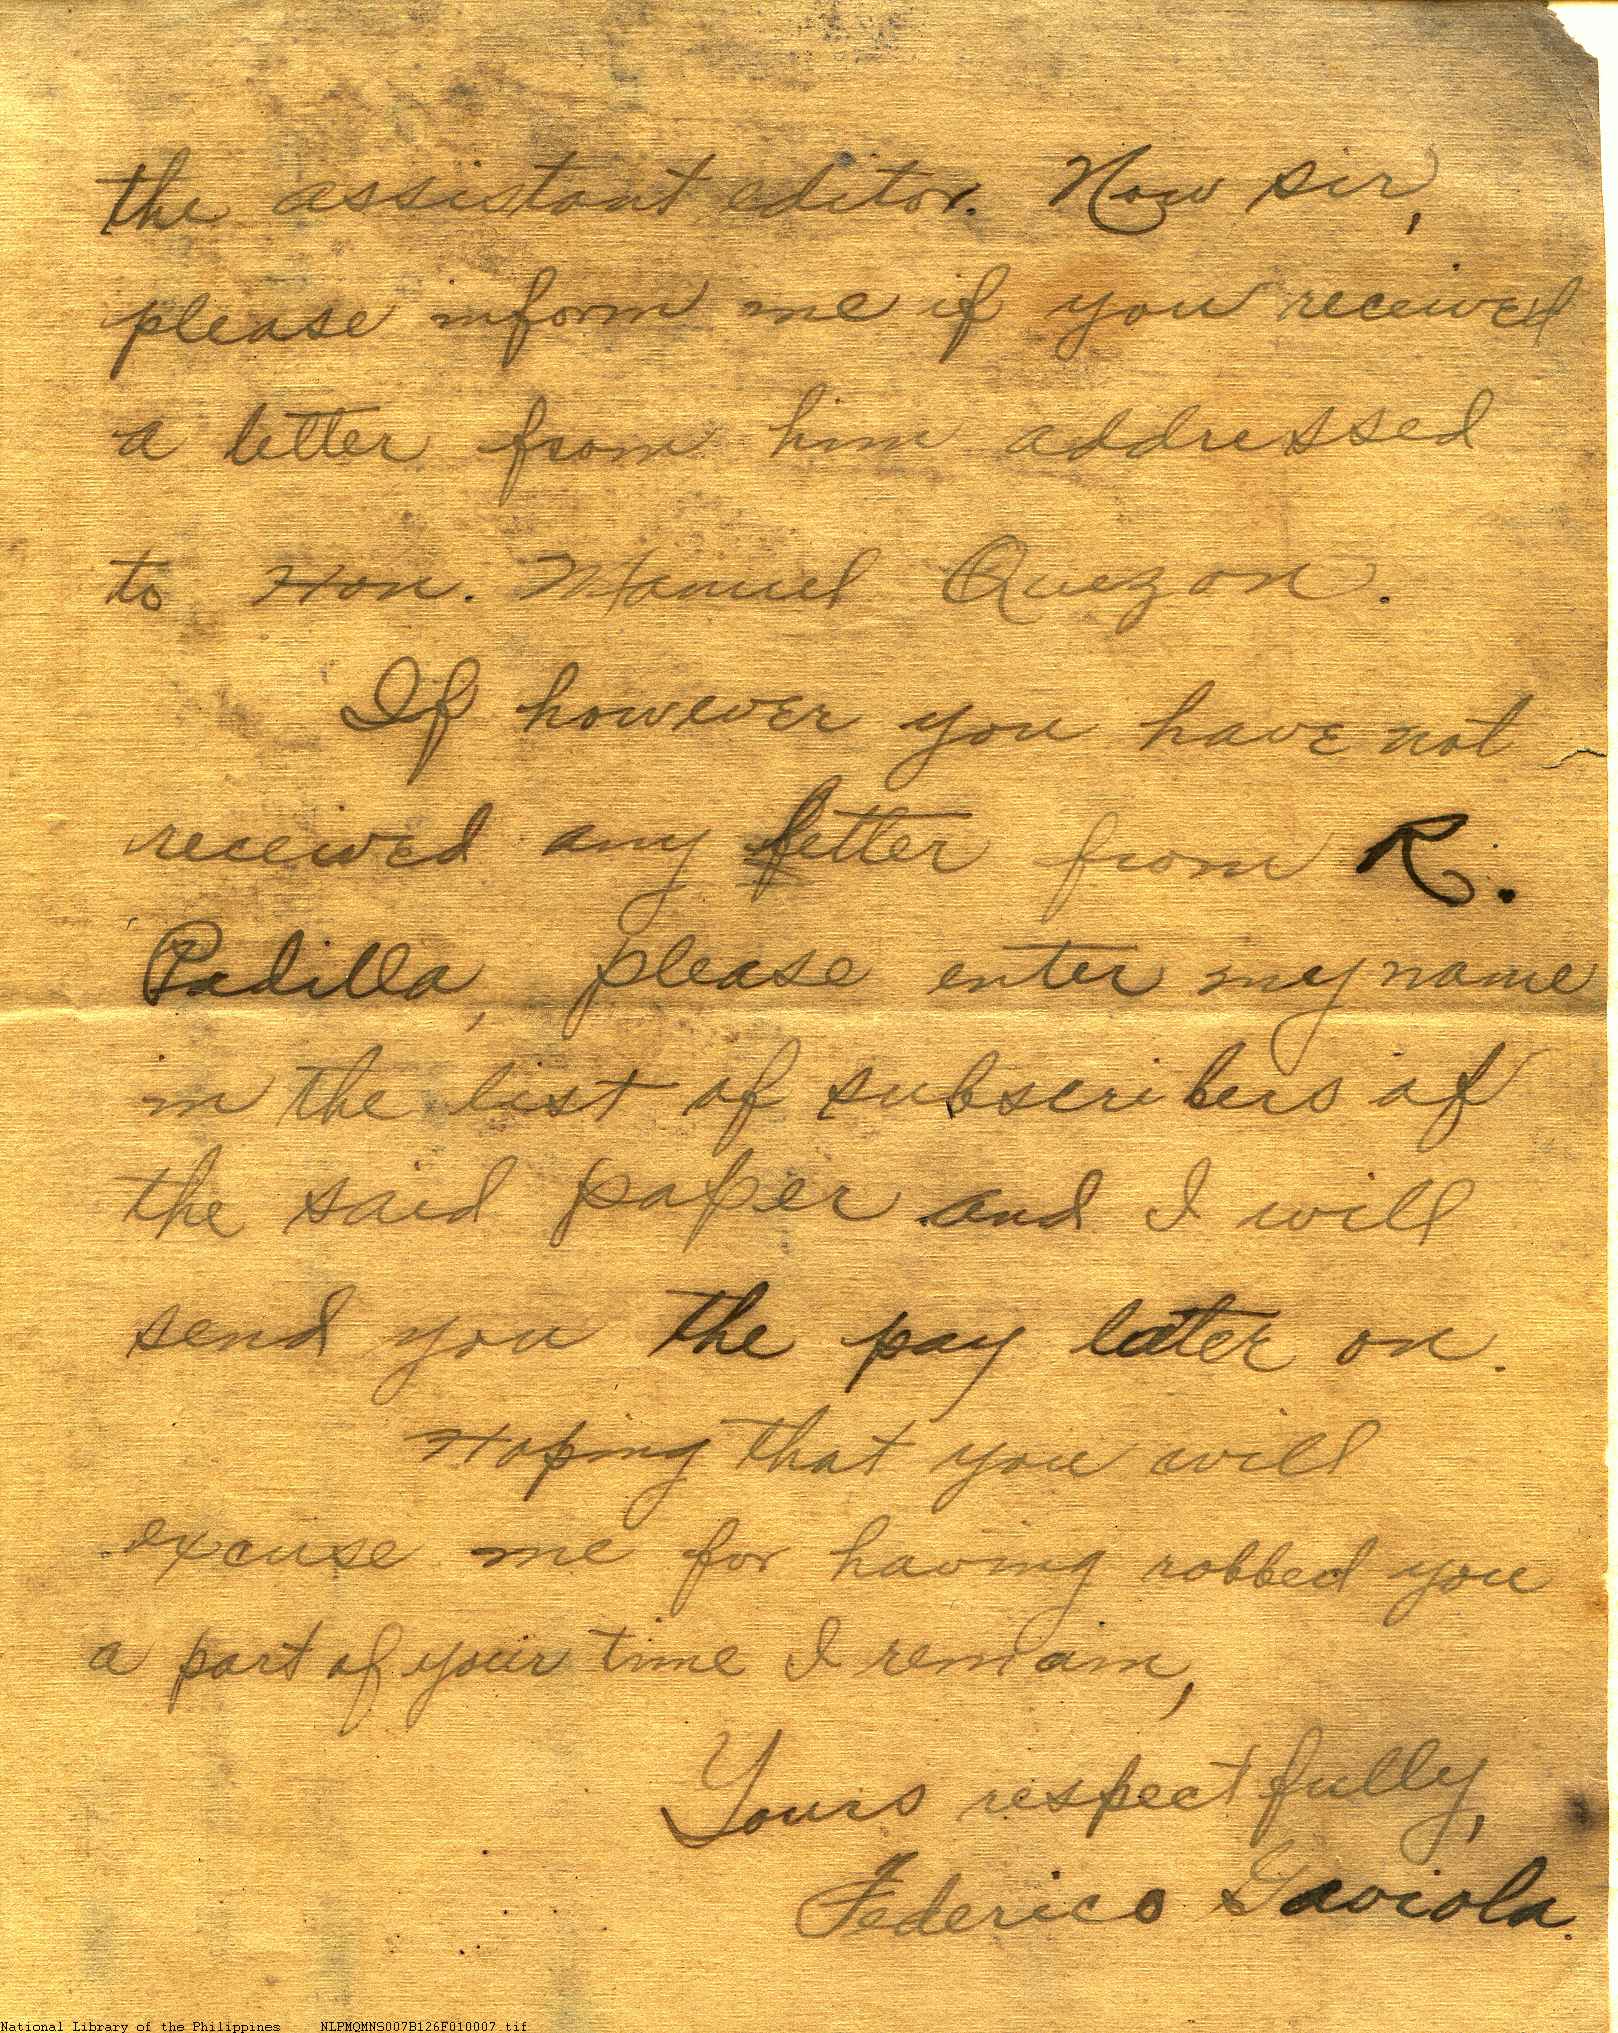 the assistant editor. Now sir,
please inform me if you received
a letter from him addressed
to Hon. Manuel Quezon.
If however you have not
received any letter from R.
Padilla, please enter my name
in the list of subscribers of
the said paper and I will
send you the pay later on.
Hoping that you will
excuse me for having robbed you
a part of your time I remain,
Yours respectfully,
Federico Gaviola.
National Library of the Philippines NLPMQMNS007B126F010007.tif